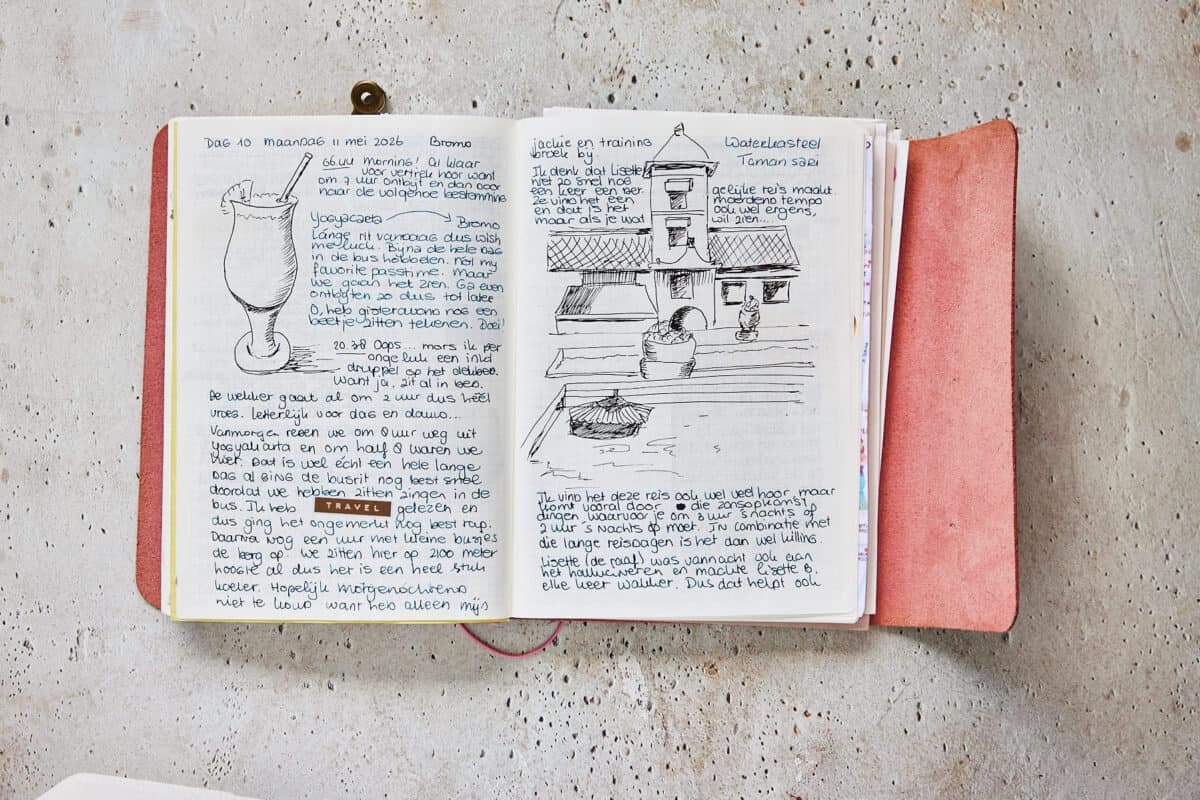 Dag 10 maandag 11 mei 2026 Bromo
morning! Al klaar
voor vertrek hoor want
om 7 uur ontbijt en dan door
naar de volgende bestemming
Yogyacarta Bromo
Lange rit vandaag dus wish
me luck. Bijna de hele dag
in de bus hobbelen. Not my
favorite passtime. Maar
we gaan het zien. Ga even
ontbijten zo dus tot later
O, heb gisteravond nog een
beetje zitten tekenen. Doei!
20.38 Oops... mors ik per
ongeluk een inkt
druppel op het dekbed.
Want ja, zit al in bed.
De wekker gaat al om 2 uur dus heel
vroeg. Letterlijk voor dag en dauw...
Vanmorgen reden we om 8 uur weg uit
Yogyakarta en om half 8 waren we
hier. Dat is wel echt een hele lange
dag al ging de busrit nog best snel
doordat we hebben zitten zingen in de
bus. Ik heb TRAVEL gelezen en
dus ging het ongemerkt nog best rap.
Daarna nog een uur met kleine busjes
de berg op. We zitten hier op 2100 meter
hoogte al dus het is een heel stuk
koeler. Hopelijk morgenochtend
niet te koud want heb alleen mijn
jackie en training
broek bij.
Waterkasteel
Taman sari
Ik denk dat Lisette
niet zo snel nog
een keer een
gelijke reis maakt.
Ze vind het een
moordend tempo
en dat is het
ook wel ergens,
maar als je wat
wil zien....
Ik vind het deze reis ook wel veel hoor maar
komt vooral door die zonsopkomst
dingen waarvoor je om 3 uur 's nachts of
2 uur 's nachts op moet. In combinatie met
die lange reisdagen is het dan wel killing.
Lisette (de raaf) was vannacht ook aan
het hallucineren en maakte Lisette B.
elke keer wakker. Dus dat helpt ook